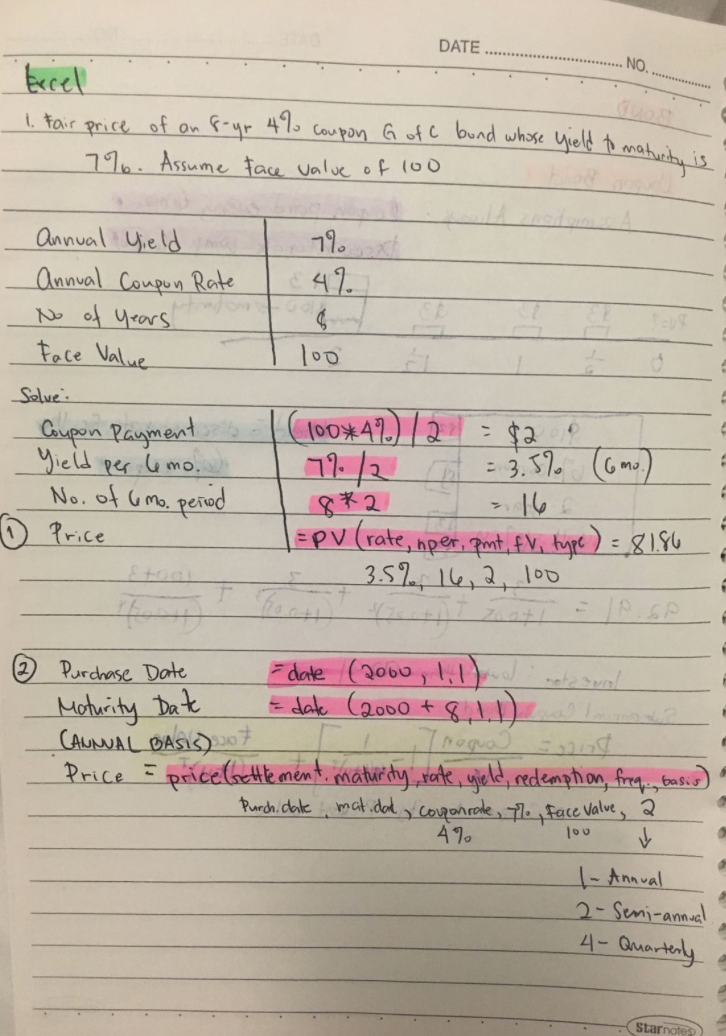 DATE
NO.
Excel
1. Fair price of an 8-yr 4% coupon G of C bond whose yield to maturity is
7%. Assume Face Value of 100
Annual Yield 7%
Annual Coupon Rate 4%
No of Years 8
Face Value 100
Solve:
Coupon Payment (100*4%)/2 = $2
Yield per 6 mo. 7%/2 = 3.5% (6mo.)
No. of 6 mo. period 8*2 = 16
① Price =PV(rate, nper, pmt, fv, type) = 81.86
3.5%, 16, 2, 100
② Purchase Date =date (2000, 1,1)
Maturity Date =date (2000 + 8,1,1)
(ANNUAL BASIS)
Price = price(settlement, maturity, rate, yield, redemption, freq., basis)
Purch.date, mat.dat, couponrate, 7%, Face Value, 2
4% 100 ↓
1- Annual
2- Semi-annual
4- Quarterly
Starnotes